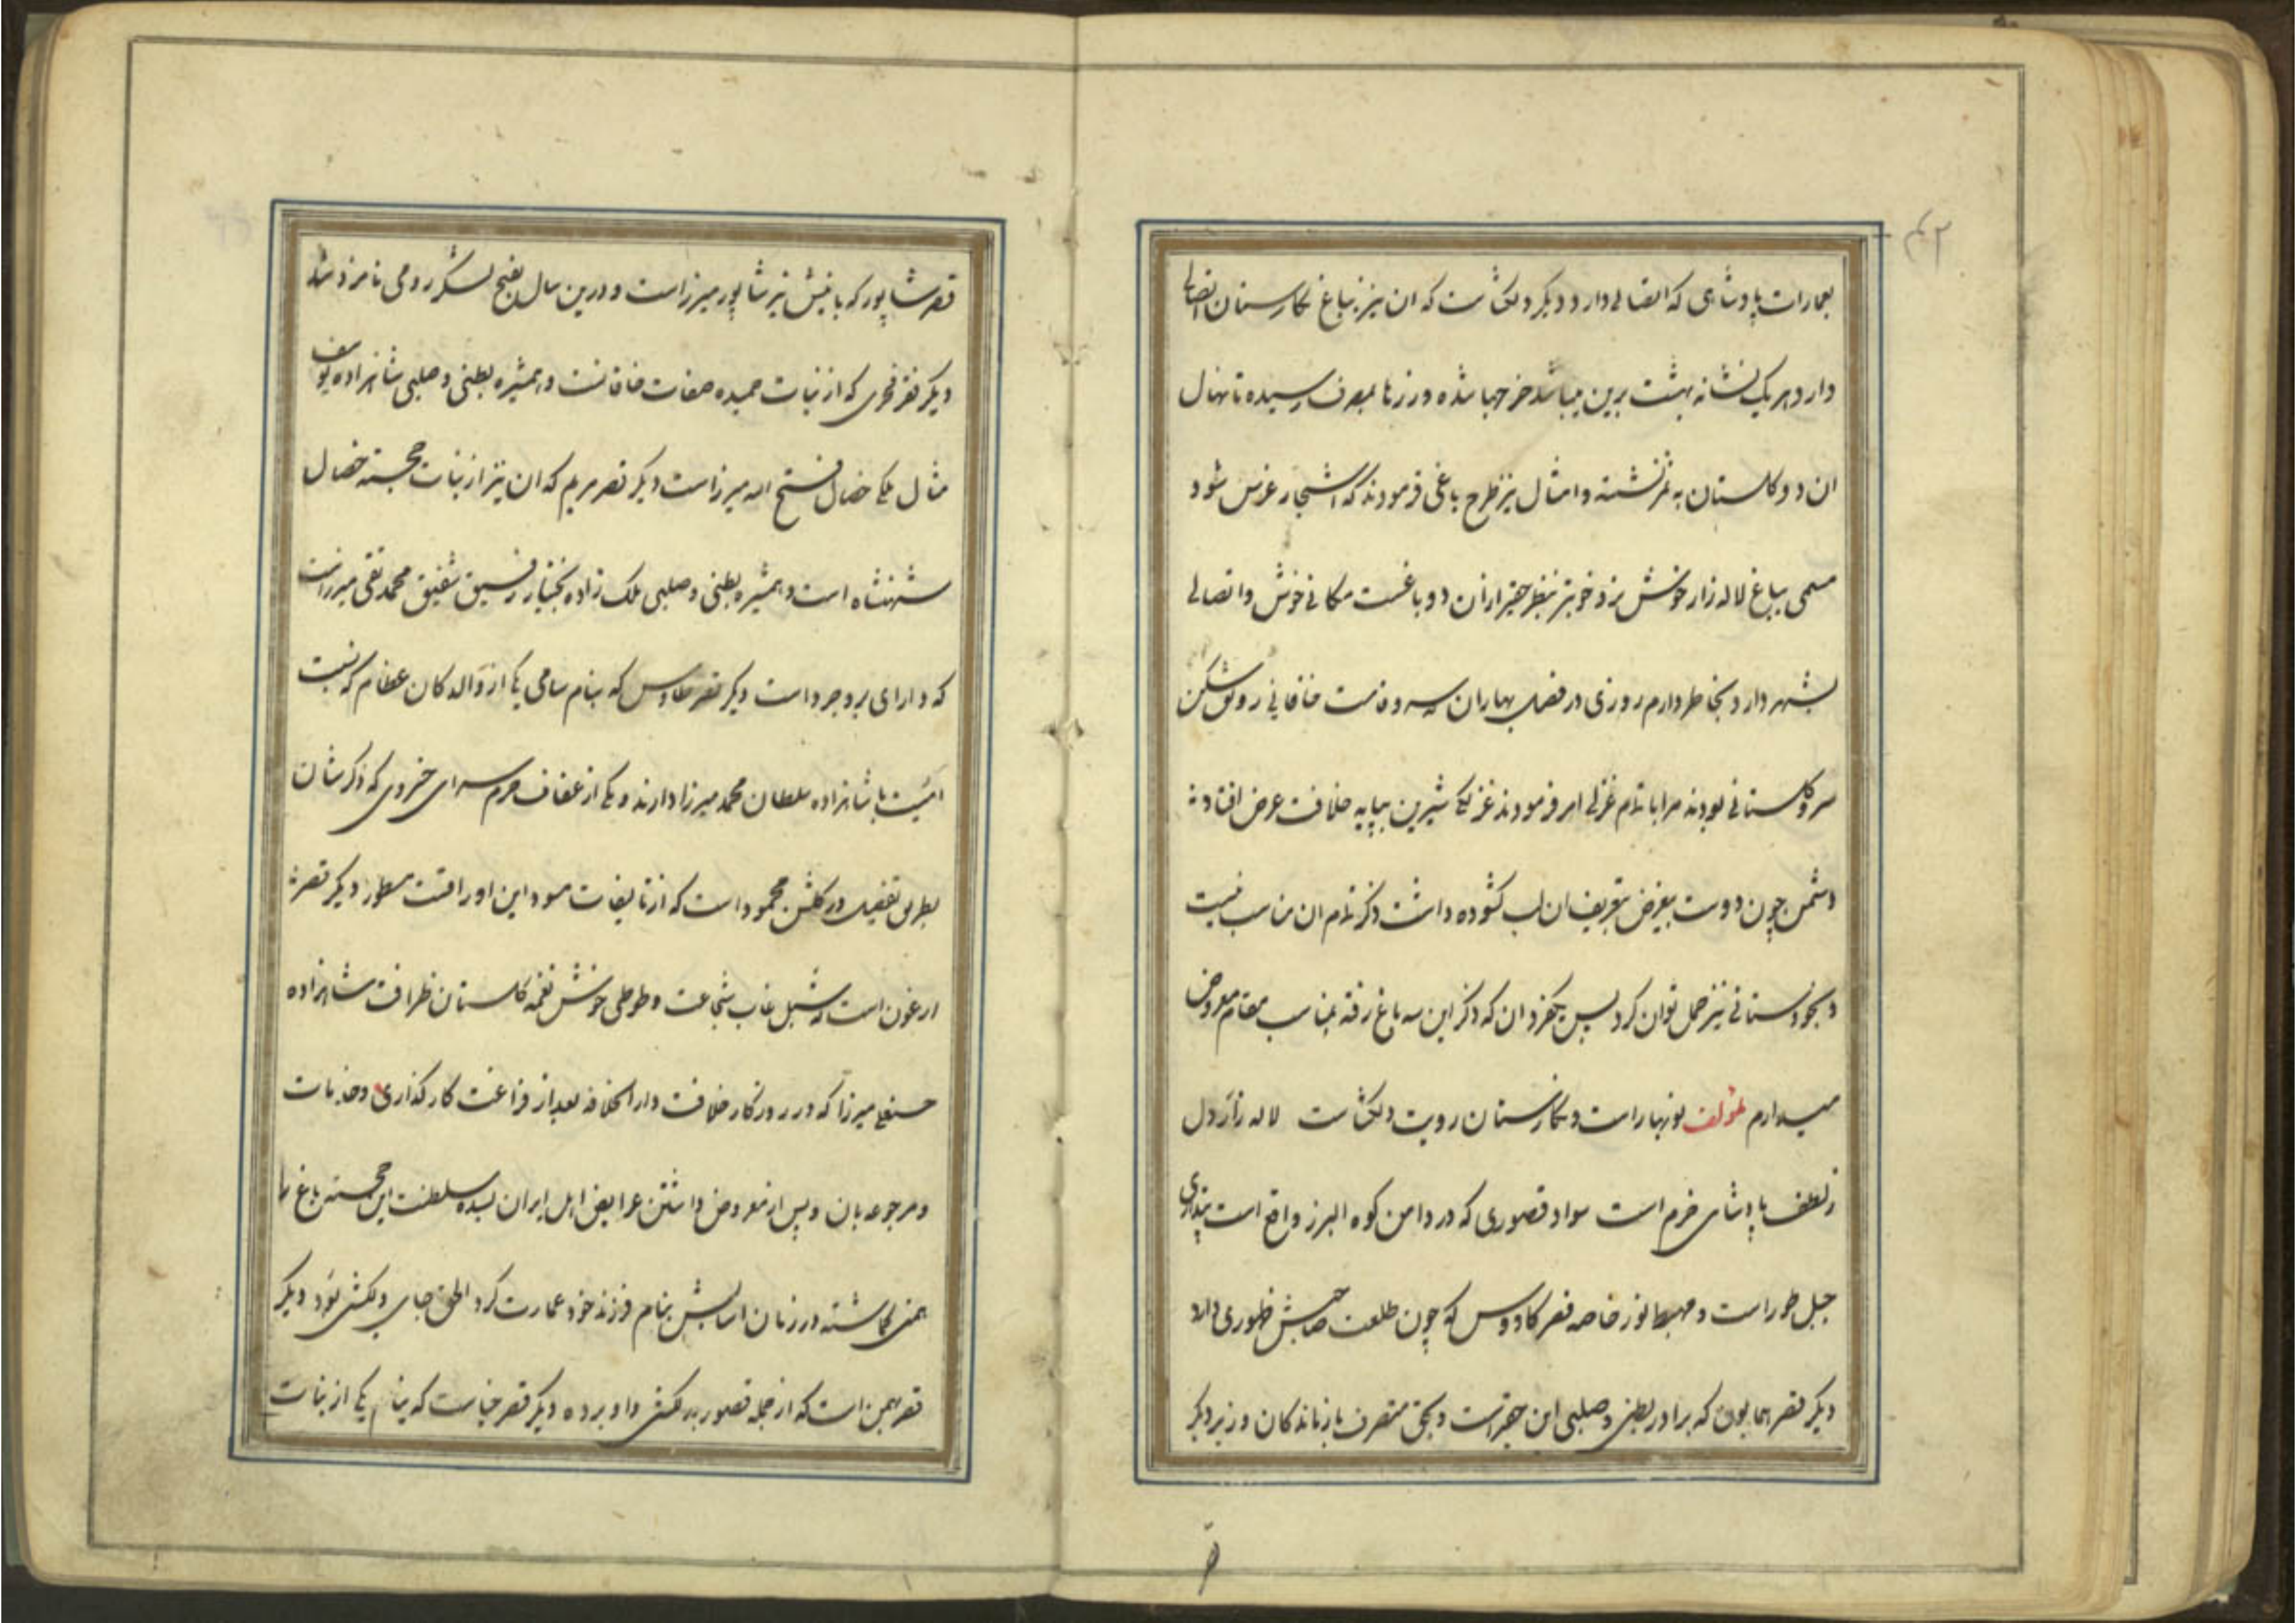 ۴۲
بعمارات پادشاهی که اتصالی دارد دیگر دلگشاست که ان نیز بباغ نگارستان اتصالی
دارد هریک نشانه بهشت برین میباشد خرجها شده و زرها بمصرف رسیده تا نهال
ان دو گلستان به ثمر نشسته و امثال نیز طرح باغی فرمودند که اشجار غرس شود
مسمی بباغ لاله زار خوش نزد خوبتر بنظر حقیر ازان دو باغست مکانی خوش و اتصالی
بشهر دارد بخاطر دارم روزی در فصل بهاران که سرو قامت خاقانی رونق شکن
سرو گلستانی بودند مرا باتمام غزلی امر فرمودند غزلکی شیرین بپایه خلافت عرض افتاد
دشمن چون دوست بیغرض بتعریف ان لب گشوده داشت ذکر تمام ان مناسب نیست
و بخودستانی نیز حمل توان کرد پس یکفرد ان که ذکر این سه باغ رفته بمناسب مقام معروض
میدارم لمؤلفه نوبهار است و نگارستان رویت دلگشاست لاله زار دل
ز لطف پادشاهی خرم است سواد قصوری که در دامن کوه البرز واقع است پنداری
جبل طور است و مهبط نور خاصه قصر کاووس که چون طلعت صاحبش ظهوری دارد
دیگر قصر همایون که برادر بطنی و صلبی این حقیر است و بحق متصرف بازماندگان وزیر دیگر
قصر شاپور که بانیش نیز شاپور میرزاست و درین سال بفتح لشکر رومی نامزد شد
دیگر قصر فخری که از بنات حمیده صفات خاقانست و همشیره بطنی و صلبی شاهزاده یوسف
مثال ملک خصال فتح الله میرزاست دیگر قصر مریم که ان نیز از بنات خجسته خصال
شهنشاه است و همشیره بطنی و صلبی ملک زاده بختیار رفیق شفیق محمد تقی میرزاست
که دارای بروجرد است دیگر قصر طاوس که بنام سامی یکی از والدگان عظام که نسبت
امیت با شاهزاده سلطان محمد میرزا دارند و یکی از عفاف حرم سرای خسروی که ذکرشان
بطریق تفصیل در گلشن محمود است که از تالیفات مسود این اوراقست مسطور دیگر قصر
ارغون است که شبل غاب شجاعت و طوطی خوش نغمه گلستان ظرافت شاهزاده
حسنعلی میرزا که در روزگار خلافت دارالخلافه بعد از فراغت کارگذاری و خدمات
و مرجوعه بان و پس از معروض داشتن عرایض اهل ایران بسده سلطنت این خجسته باغ را
همتی گماشته در زمان اسایش بنام فرزند خود عمارت کرد الحق جای دلکشی بود دیگر
قصر بهمن است که از جمله قصور به دلکشی داو برده دیگر قصر جناست که بنام یکی از بنات